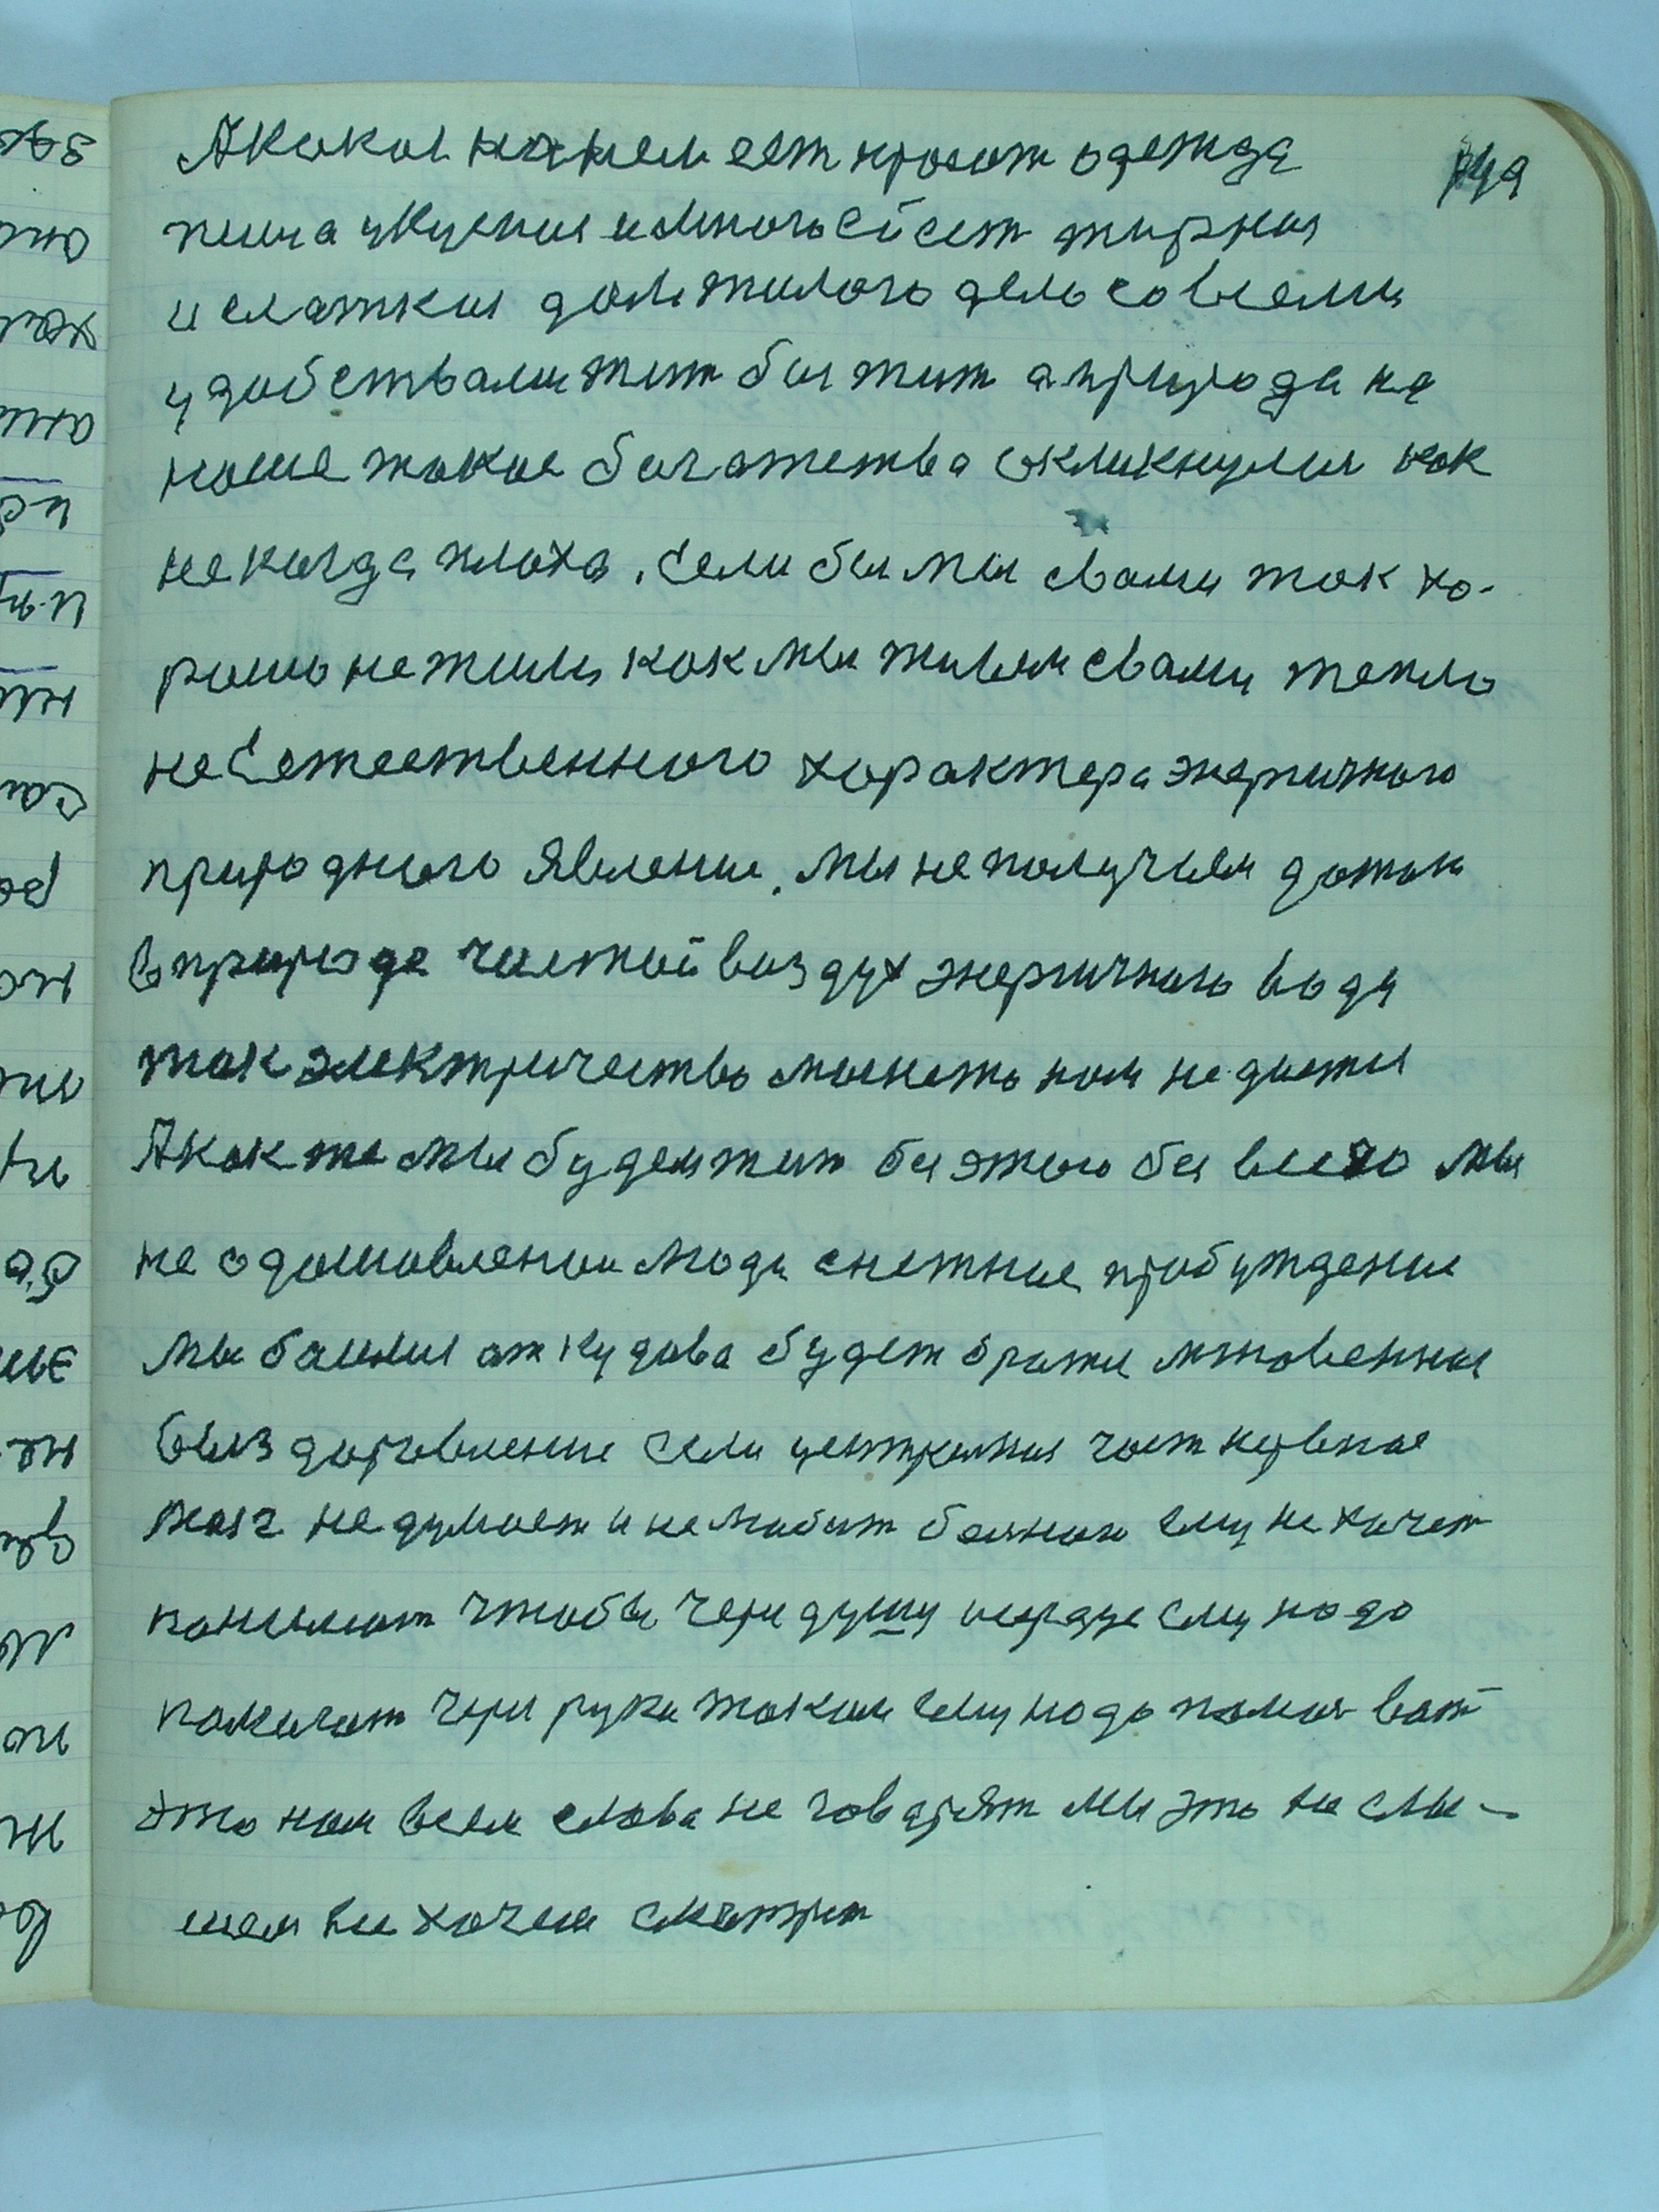 149
Акакая на нем ест красат одежда
пища укусная и многа ей сест жырная
и слаткая дом жилого дело со всеми
удобствами жит бы жит а природа на
наше такое багатетва скликнулся как
некагда плоха. Если бы мы свами так ха-
рашо не жили как мы живем свами тепло
не Естественного характера энергичного
природного явление. мы не получием даток
в природе чистай воздух энергичного вода
так электричество магнето нам не дается
А как же мы будем жит бз этого бз всего мы
не одошовленаи люди снежнае пробуждение
мы баимся аткудава будет братся мгновенная
выздоровление если центральная част нервнае
мозг не думает и не любит болнаи ему не хочет
панимат чтобы через душу и сердце ему надо
помагат через руки такам ему надо помага ват
это нам всем слова не говарят мы это не слы-
шем ни хочем сматрит